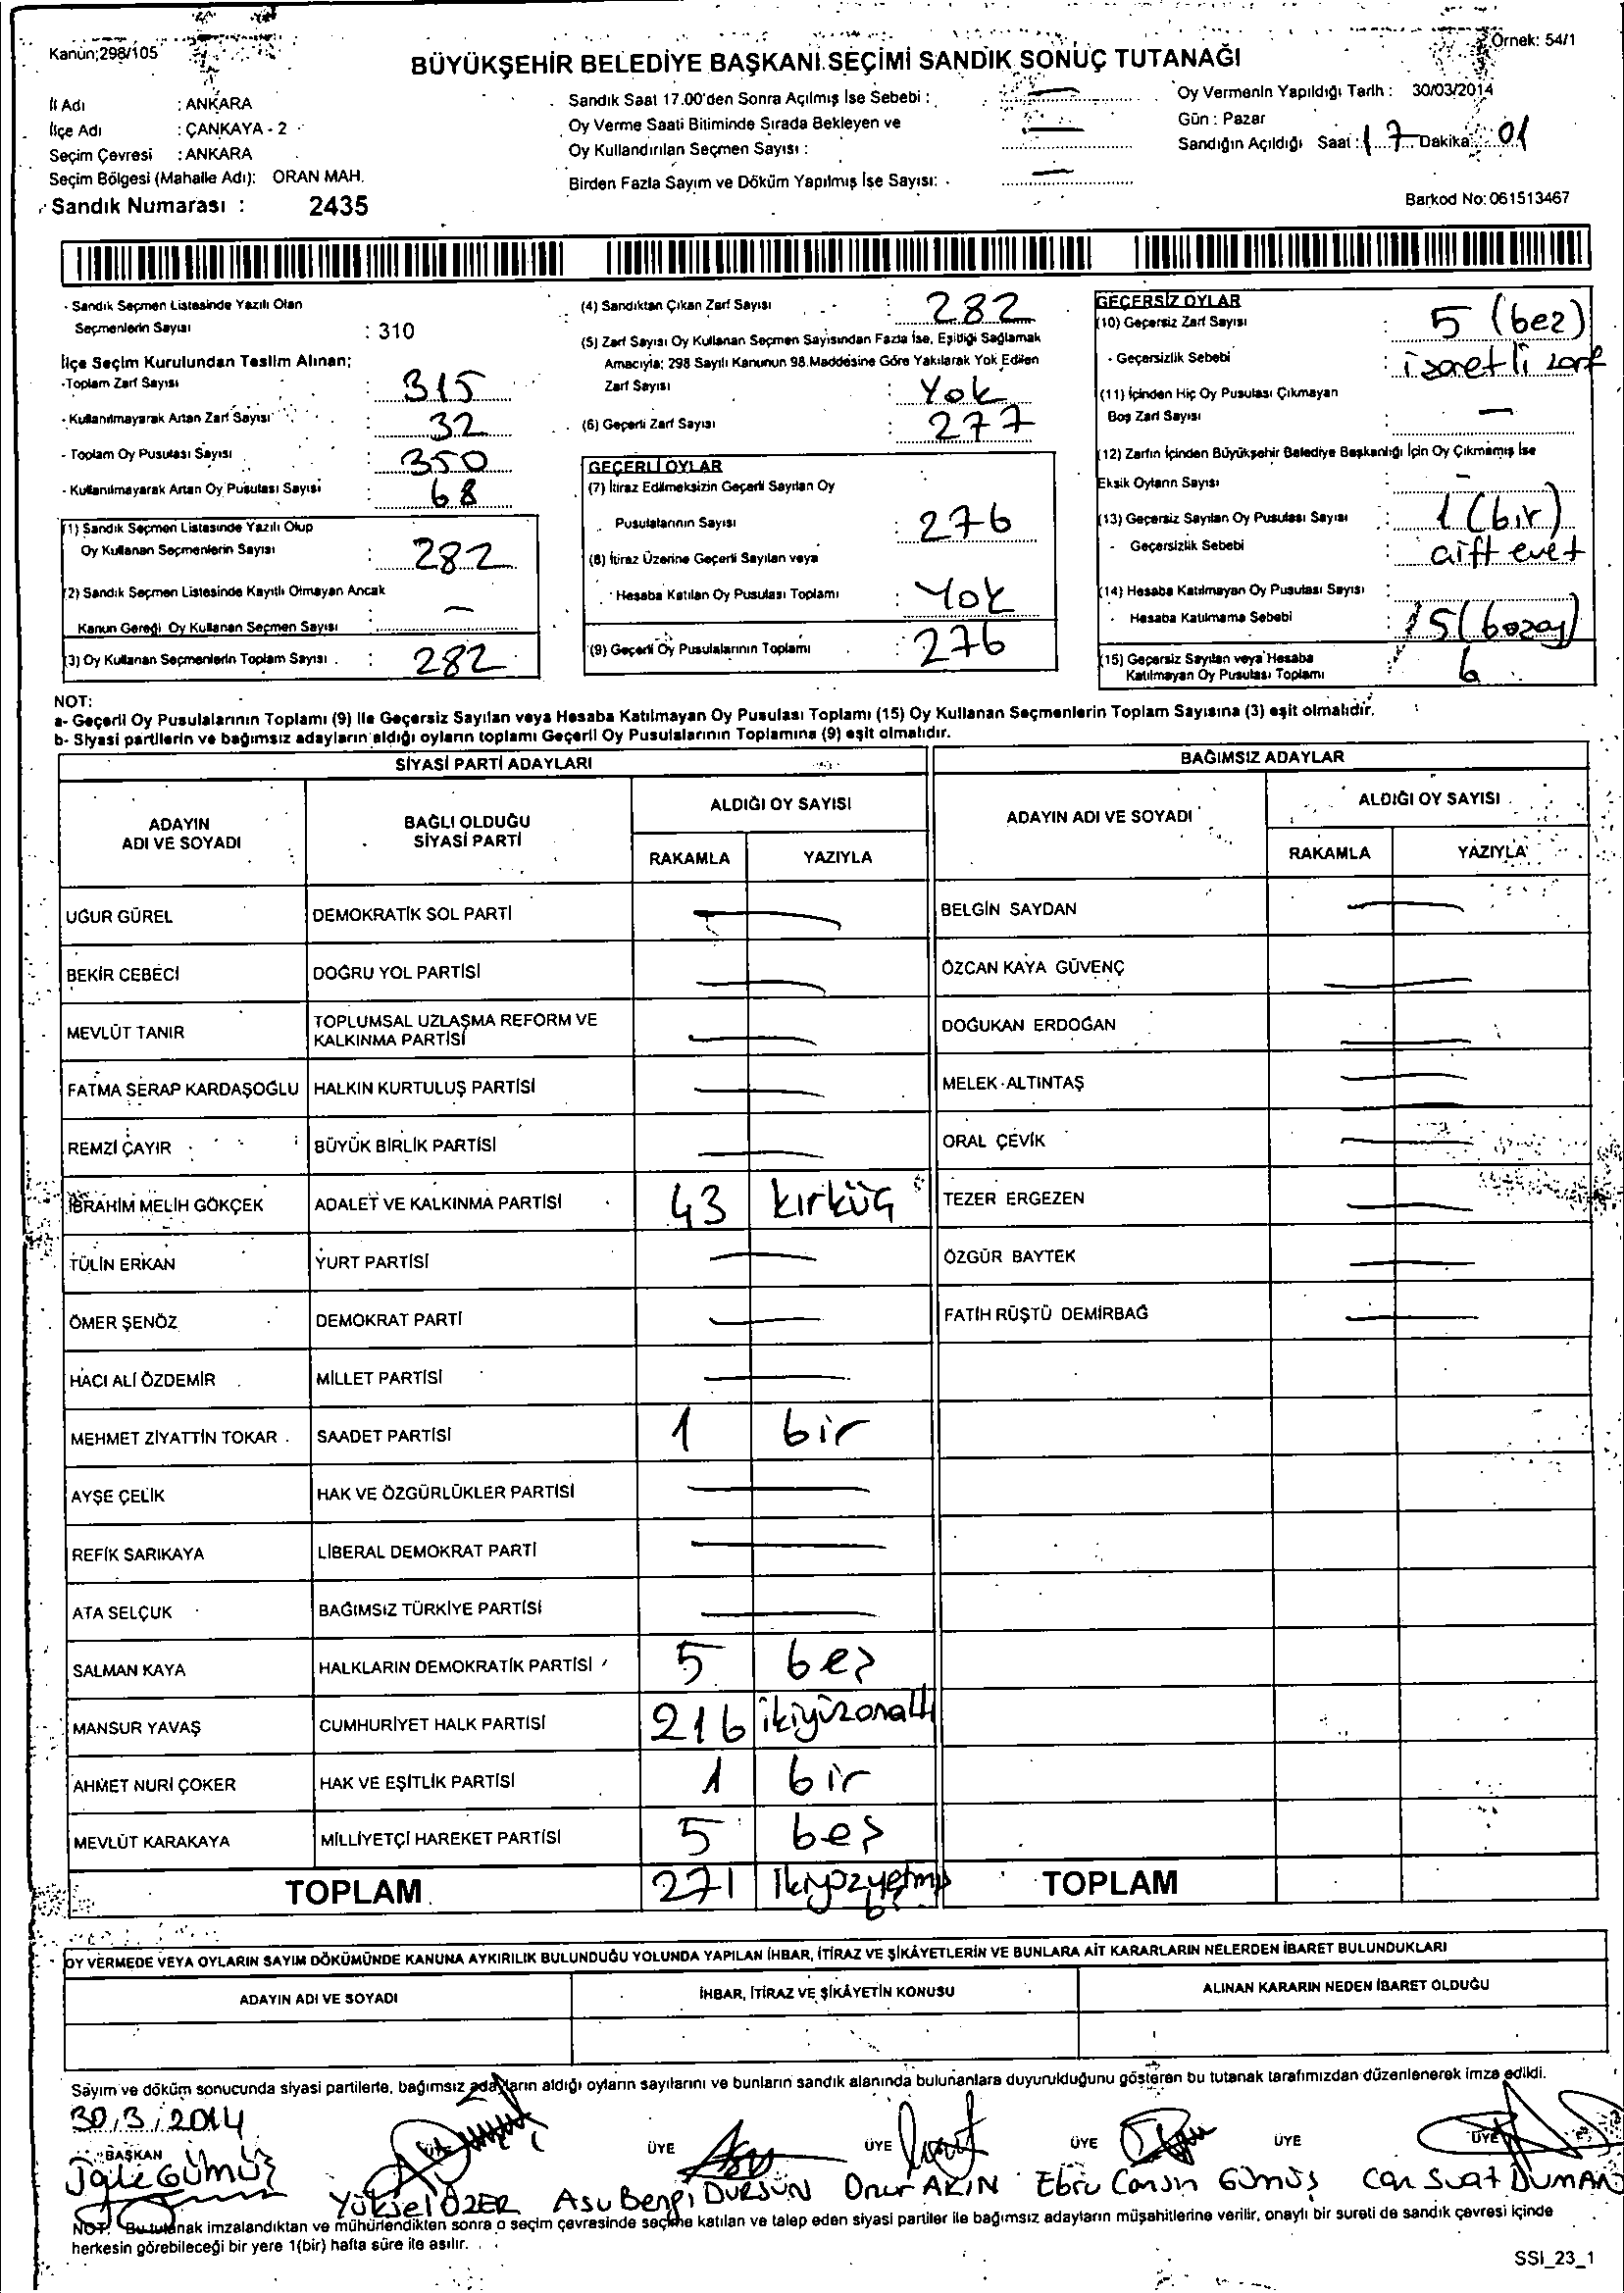 Kanun;298/105
Örnek: 54/1
BÜYÜKŞEHİR BELEDİYE BAŞKANI SEÇİMİ SANDIK SONUÇ TUTANAĞI
İl Adı : ANKARA
İlçe Adı : ÇANKAYA - 2
Seçim Çevresi : ANKARA
Seçim Bölgesi (Mahalle Adı): ORAN MAH.
Sandık Numarası : 2435
Sandık Saat 17.00'den Sonra Açılmış İse Sebebi :
Oy Verme Saati Bitiminde Sırada Bekleyen ve
Oy Kullandırılan Seçmen Sayısı :
Birden Fazla Sayım ve Döküm Yapılmış İse Sayısı:
Oy Vermenin Yapıldığı Tarih : 30/03/2014
Gün : Pazar
Sandığın Açıldığı Saat : 17 Dakika: 01
Barkod No: 061513467
- Sandık Seçmen Listesinde Yazılı Olan
Seçmenlerin Sayısı : 310
İlçe Seçim Kurulundan Teslim Alınan;
-Toplam Zarf Sayısı : 315
- Kullanılmayarak Artan Zarf Sayısı : 32
- Toplam Oy Pusulası Sayısı : 350
- Kullanılmayarak Artan Oy Pusulası Sayısı : 68
(1) Sandık Seçmen Listesinde Yazılı Olup
Oy Kullanan Seçmenlerin Sayısı : 282
(2) Sandık Seçmen Listesinde Kayıtlı Olmayan Ancak
Kanun Gereği Oy Kullanan Seçmen Sayısı : —
(3) Oy Kullanan Seçmenlerin Toplam Sayısı : 282
(4) Sandıktan Çıkan Zarf Sayısı : 282
(5) Zarf Sayısı Oy Kullanan Seçmen Sayısından Fazla İse, Eşitliği Sağlamak
Amacıyla; 298 Sayılı Kanunun 98.Maddesine Göre Yakılarak Yok Edilen
Zarf Sayısı : Yok
(6) Geçerli Zarf Sayısı : 277
GEÇERLİ OYLAR
(7) İtiraz Edilmeksizin Geçerli Sayılan Oy
Pusulalarının Sayısı : 276
(8) İtiraz Üzerine Geçerli Sayılan veya
Hesaba Katılan Oy Pusulası Toplamı : Yok
(9) Geçerli Oy Pusulalarının Toplamı : 276
GEÇERSİZ OYLAR
(10) Geçersiz Zarf Sayısı : 5 (beş)
- Geçersizlik Sebebi : işaretli zarf
(11) İçinden Hiç Oy Pusulası Çıkmayan
Boş Zarf Sayısı : —
(12) Zarfın İçinden Büyükşehir Belediye Başkanlığı İçin Oy Çıkmamış İse
Eksik Oyların Sayısı : —
(13) Geçersiz Sayılan Oy Pusulası Sayısı : 1 (bir)
- Geçersizlik Sebebi : çift evet
(14) Hesaba Katılmayan Oy Pusulası Sayısı :
- Hesaba Katılmama Sebebi :
(15) Geçersiz Sayılan veya Hesaba
Katılmayan Oy Pusulası Toplamı 6
NOT:
a- Geçerli Oy Pusulalarının Toplamı (9) ile Geçersiz Sayılan veya Hesaba Katılmayan Oy Pusulası Toplamı (15) Oy Kullanan Seçmenlerin Toplam Sayısına (3) eşit olmalıdır.
b- Siyasi partilerin ve bağımsız adayların aldığı oyların toplamı Geçerli Oy Pusulalarının Toplamına (9) eşit olmalıdır.
SİYASİ PARTİ ADAYLARI
BAĞIMSIZ ADAYLAR
ADAYIN ADI VE SOYADI
BAĞLI OLDUĞU SİYASİ PARTİ
ALDIĞI OY SAYISI
RAKAMLA YAZIYLA
ADAYIN ADI VE SOYADI
ALDIĞI OY SAYISI
RAKAMLA YAZIYLA
UĞUR GÜREL DEMOKRATİK SOL PARTİ — BELGİN SAYDAN —
BEKİR CEBECİ DOĞRU YOL PARTİSİ — ÖZCAN KAYA GÜVENÇ —
MEVLÜT TANIR TOPLUMSAL UZLAŞMA REFORM VE KALKINMA PARTİSİ — DOĞUKAN ERDOĞAN —
FATMA SERAP KARDAŞOĞLU HALKIN KURTULUŞ PARTİSİ — MELEK ALTINTAŞ —
REMZİ ÇAYIR BÜYÜK BİRLİK PARTİSİ — ORAL ÇEVİK —
İBRAHİM MELİH GÖKÇEK ADALET VE KALKINMA PARTİSİ 43 kırküç TEZER ERGEZEN —
TÜLİN ERKAN YURT PARTİSİ — ÖZGÜR BAYTEK —
ÖMER ŞENÖZ DEMOKRAT PARTİ — FATİH RÜŞTÜ DEMİRBAĞ —
HACI ALİ ÖZDEMİR MİLLET PARTİSİ —
MEHMET ZİYATTİN TOKAR SAADET PARTİSİ 1 bir
AYŞE ÇELİK HAK VE ÖZGÜRLÜKLER PARTİSİ —
REFİK SARIKAYA LİBERAL DEMOKRAT PARTİ —
ATA SELÇUK BAĞIMSIZ TÜRKİYE PARTİSİ —
SALMAN KAYA HALKLARIN DEMOKRATİK PARTİSİ 5 beş
MANSUR YAVAŞ CUMHURİYET HALK PARTİSİ 216 ikiyüzonaltı
AHMET NURİ ÇOKER HAK VE EŞİTLİK PARTİSİ 1 bir
MEVLÜT KARAKAYA MİLLİYETÇİ HAREKET PARTİSİ 5 beş
TOPLAM 271 TOPLAM
OY VERMEDE VEYA OYLARIN SAYIM DÖKÜMÜNDE KANUNA AYKIRILIK BULUNDUĞU YOLUNDA YAPILAN İHBAR, İTİRAZ VE ŞİKÂYETLERİN VE BUNLARA AİT KARARLARIN NELERDEN İBARET BULUNDUKLARI
ADAYIN ADI VE SOYADI İHBAR, İTİRAZ VE ŞİKÂYETİN KONUSU ALINAN KARARIN NEDEN İBARET OLDUĞU
Sayım ve döküm sonucunda siyasi partilerle, bağımsız adayların aldığı oyların sayılarını ve bunların sandık alanında bulunanlara duyurulduğunu gösteren bu tutanak tarafımızdan düzenlenerek imza edildi.
30/3/2014
BAŞKAN ÜYE ÜYE ÜYE ÜYE ÜYE
Jale Gümüş Yüksel ÖZER Asu Bengi DURSUN Onur AKIN Ebru Cansın Gümüş Can Suat DUMAN
NOT: Bu tutanak imzalandıktan ve mühürlendikten sonra o seçim çevresinde seçime katılan ve talep eden siyasi partiler ile bağımsız adayların müşahitlerine verilir, onaylı bir sureti de sandık çevresi içinde
herkesin görebileceği bir yere 1(bir) hafta süre ile asılır.
SSI_23_1